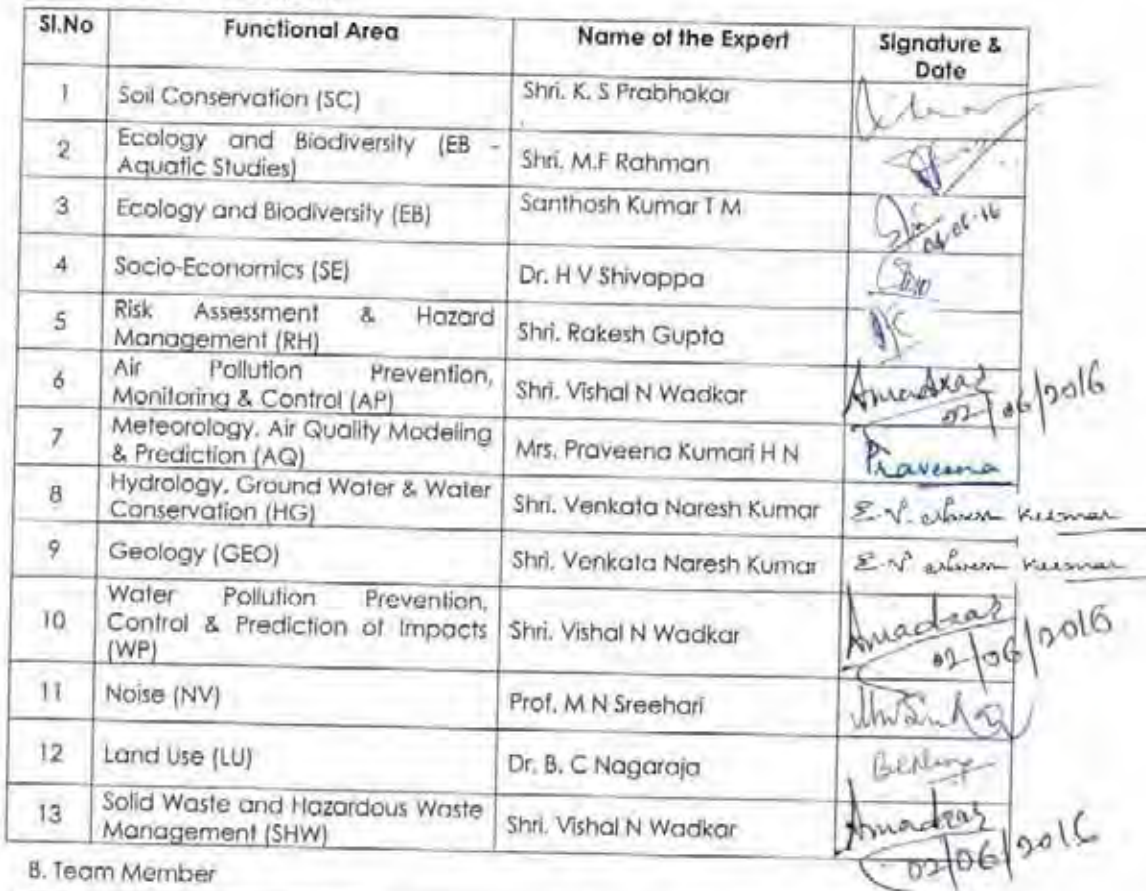 Sl.No Functional Area Name of the Expert Signature &
Date
1 Soil Conservation (SC) Shri. K. S Prabhokar
2 Ecology and Biodiversity (EB -
Aquatic Studies) Shri. M.F Rahman
3 Ecology and Biodiversity (EB) Santhosh Kumar T M
06.06.16
4 Socio-Economics (SE) Dr. H V Shivappa
5 Risk Assessment & Hazard
Management (RH) Shri. Rakesh Gupta
6 Air Pollution Prevention,
Monitoring & Control (AP) Shri. Vishal N Wadkar
02/06/2016
7 Meteorology, Air Quality Modeling
& Prediction (AQ) Mrs. Praveena Kumari H N Praveena
8 Hydrology, Ground Water & Water
Conservation (HG) Shri. Venkata Naresh Kumar E.V. Kumar
9 Geology (GEO) Shri. Venkata Naresh Kumar E.V. Kumar
10 Water Pollution Prevention,
Control & Prediction of Impacts
(WP) Shri. Vishal N Wadkar
02/06/2016
11 Noise (NV) Prof. M N Sreehari
12 Land Use (LU) Dr. B. C Nagaraja
13 Solid Waste and Hazardous Waste
Management (SHW) Shri. Vishal N Wadkar
02/06/2016
B. Team Member